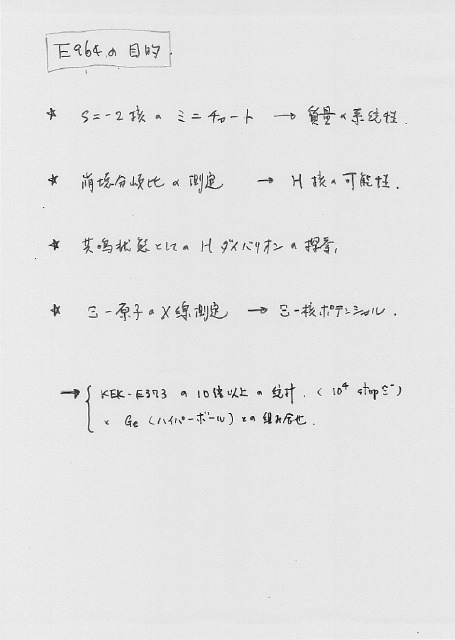 E964 の 目的.
★ S=-2 核 の ミニチャート → 質量の系統性.
★ 崩壊分岐比の測定 → H 核の可能性.
★ 共鳴状態としての H ダイバリオンの探索,
★ Ξ-原子のX線測定 → Ξ-核ポテンシャル.
→ { KEK-E373 の 10倍以上の統計. (10⁴ stop Ξ⁻)
× Ge (ハイパーボール) との組み合せ.